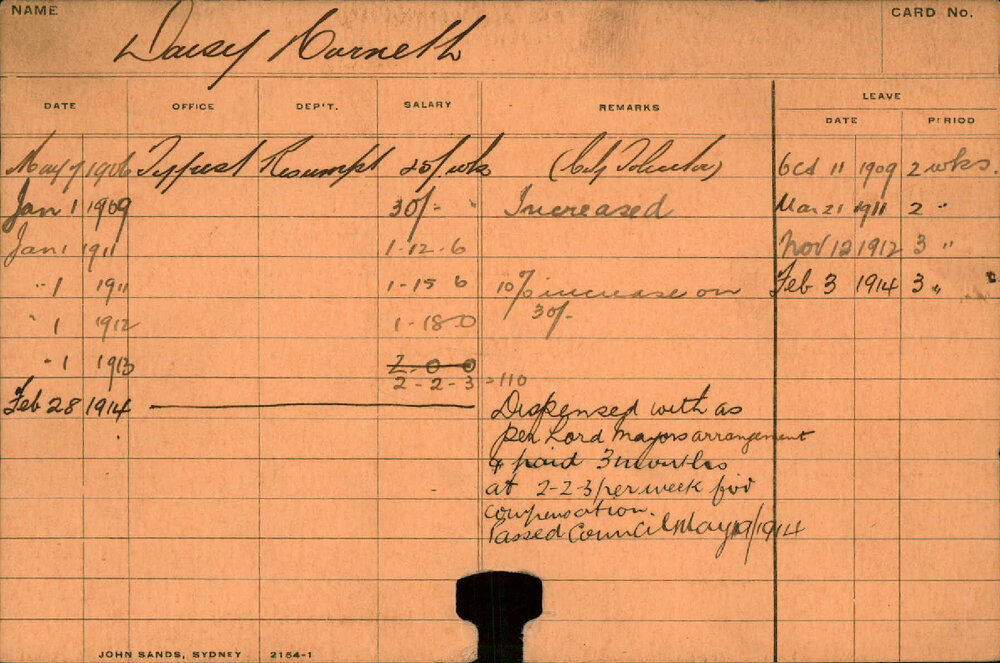 NAME
CARD No.
Daisy Horneth
DATE OFFICE DEP'T. SALARY REMARKS LEAVE
DATE PERIOD
May 7 1906 Typist Resumpt 25/ wk (City Solicitor) Oct 11 1909 2 wks.
Jan 1 1909 30/- " Increased Mar 21 1911 2 "
Jan 1 1911 1-12-6 Nov 12 1912 3 "
" 1 1911 1-15 6 10% increase on Feb 3 1914 3 "
30/-
" 1 1912 1-18-0
" 1 1913 2-0-0
2-2-3 = 110
Feb 28 1914 Dispensed with as
per Lord Mayors arrangement
& paid 3 months
at 2-2-3 per week for
compensation.
Passed Council May 19/1914
JOHN SANDS, SYDNEY 2154-1